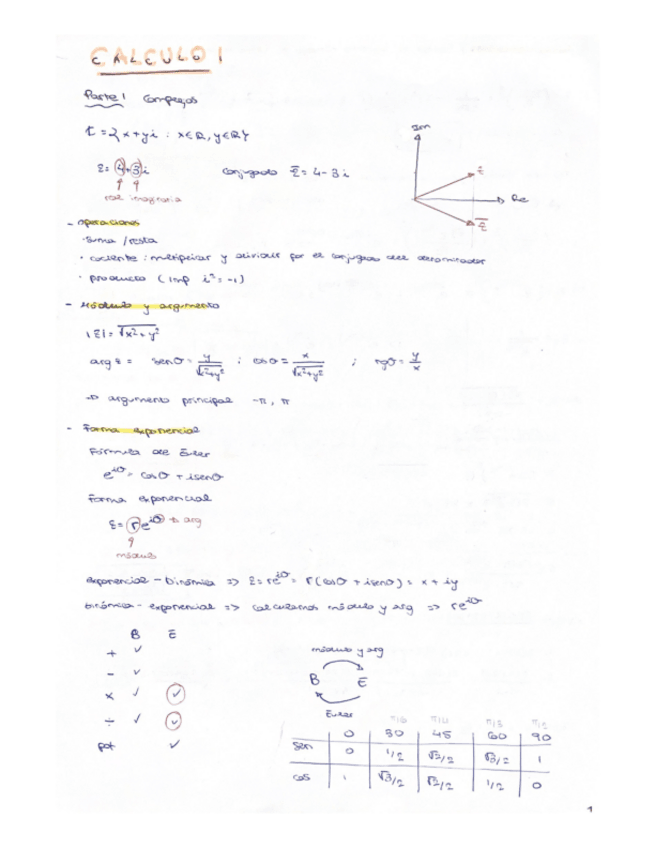 CALCULO 1
Parte 1 Complejos
ℂ = { x + yi : x ∈ ℝ, y ∈ ℝ }
Im
z = 4 + 3i
conjugado z̄ = 4 - 3i
z
Re
real imaginaria
z̄
- Operaciones
· Suma / resta
· cociente: multiplicar y dividir por el conjugado del denominador
· producto ( imp i² = -1 )
- Módulo y argumento
|z| = √x² + y²
arg z = sen θ = y/√x²+y² ; cos θ = x/√x²+y² ; tg θ = y/x
→ argumento principal -π, π
- Forma exponencial
Fórmula de Euler
e^iθ = cos θ + i sen θ
Forma exponencial
z = r e^iθ → arg
módulo
exponencial - binómica => z = re^iθ = r (cos θ + i sen θ) = x + iy
binómica - exponencial => calculamos módulo y arg => re^iθ
B E
+ ✓
- ✓
x ✓ ✓
÷ ✓ ✓
pot ✓
módulo y arg
B E
Euler
π/6 π/4 π/3 π/2
0 30 45 60 90
sen 0 1/2 √2/2 √3/2 1
cos 1 √3/2 √2/2 1/2 0
1